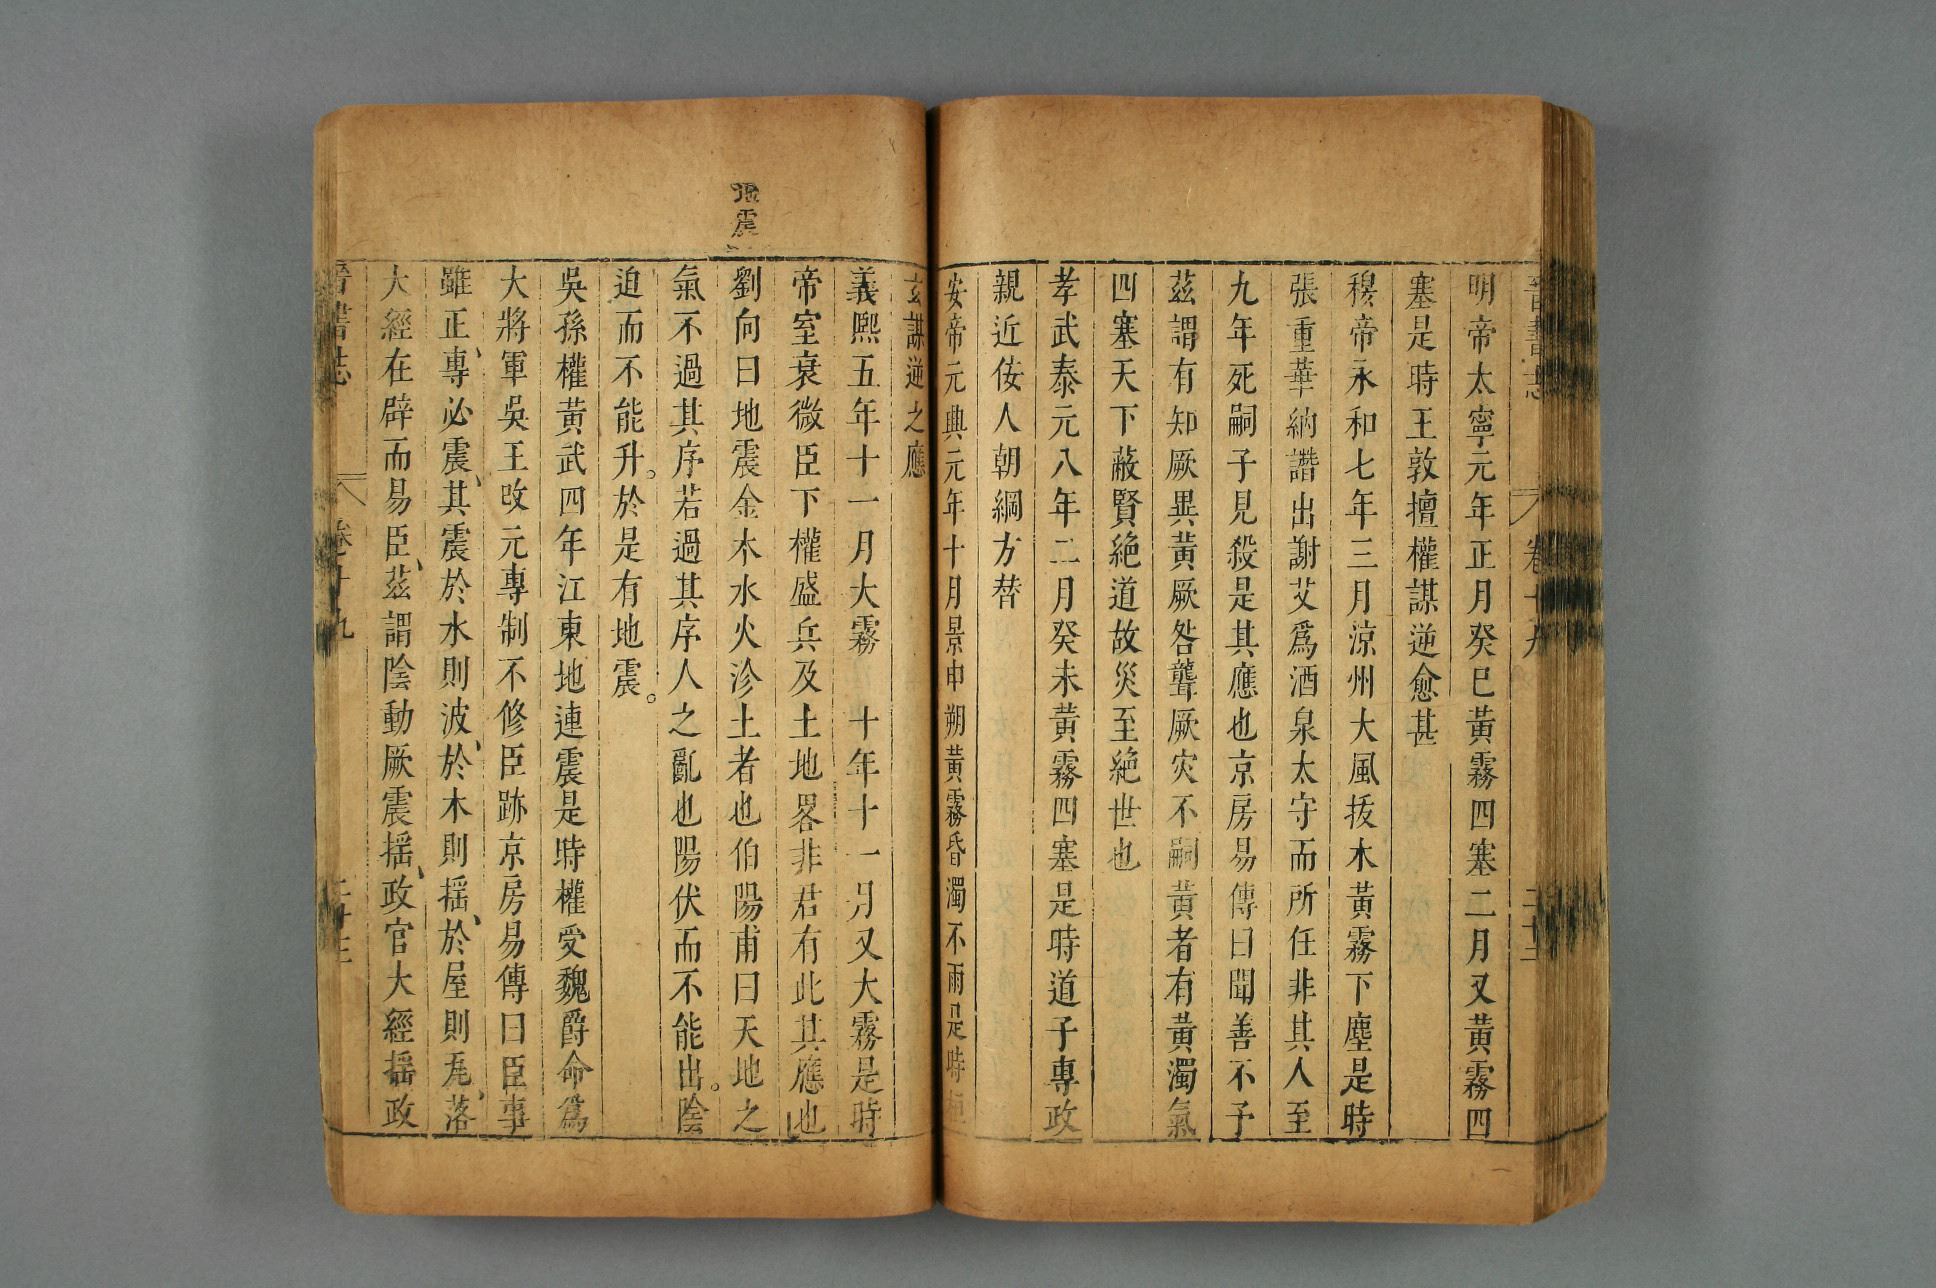 晉書志 卷十九 二十二
明帝太寧元年正月癸巳黃霧四塞二月又黃霧四
塞是時王敦擅權謀逆愈甚
穆帝永和七年三月涼州大風拔木黃霧下塵是時
張重華納譖出謝艾爲酒泉太守而所任非其人至
九年死嗣子見殺是其應也京房易傳曰聞善不予
茲謂有知厥異黃厥咎聾厥灾不嗣黃者有黃濁氣
四塞天下蔽賢絶道故災至絶世也
孝武泰元八年二月癸未黃霧四塞是時道子專政
親近佞人朝綱方替
安帝元興元年十月景申朔黃霧昏濁不雨是時桓
玄謀逆之應
義熙五年十一月大霧 十年十一月又大霧是時
帝室衰微臣下權盛兵及土地畧非君有此其應也
地震
劉向曰地震金木水火沴土者也伯陽甫曰天地之
氣不過其序若過其序人之亂也陽伏而不能出。陰
迫而不能升。於是有地震。
吳孫權黃武四年江東地連震是時權受魏爵命爲
大將軍吳王改元專制不修臣跡京房易傳曰臣事
雖正、專必震、其震於水則波、於木則摇、於屋則瓦、落
大經在辟而易臣、茲謂陰動厥震摇、政官大經摇政
晉書志 卷十九 二十三